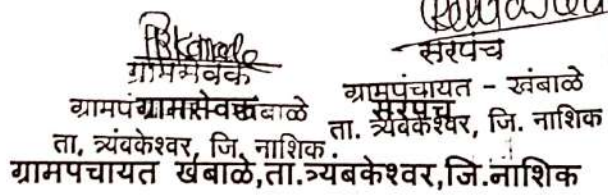 ग्रामसेवक
ग्रामपंचायत खंबाळे
ग्रामसेवक
ता. त्र्यंबकेश्वर, जि. नाशिक.
सरपंच
ग्रामपंचायत - खंबाळे
सरपंच
ता. त्र्यंबकेश्वर, जि. नाशिक
ग्रामपंचायत खंबाळे,ता.त्र्यबकेश्वर,जि.नाशिक